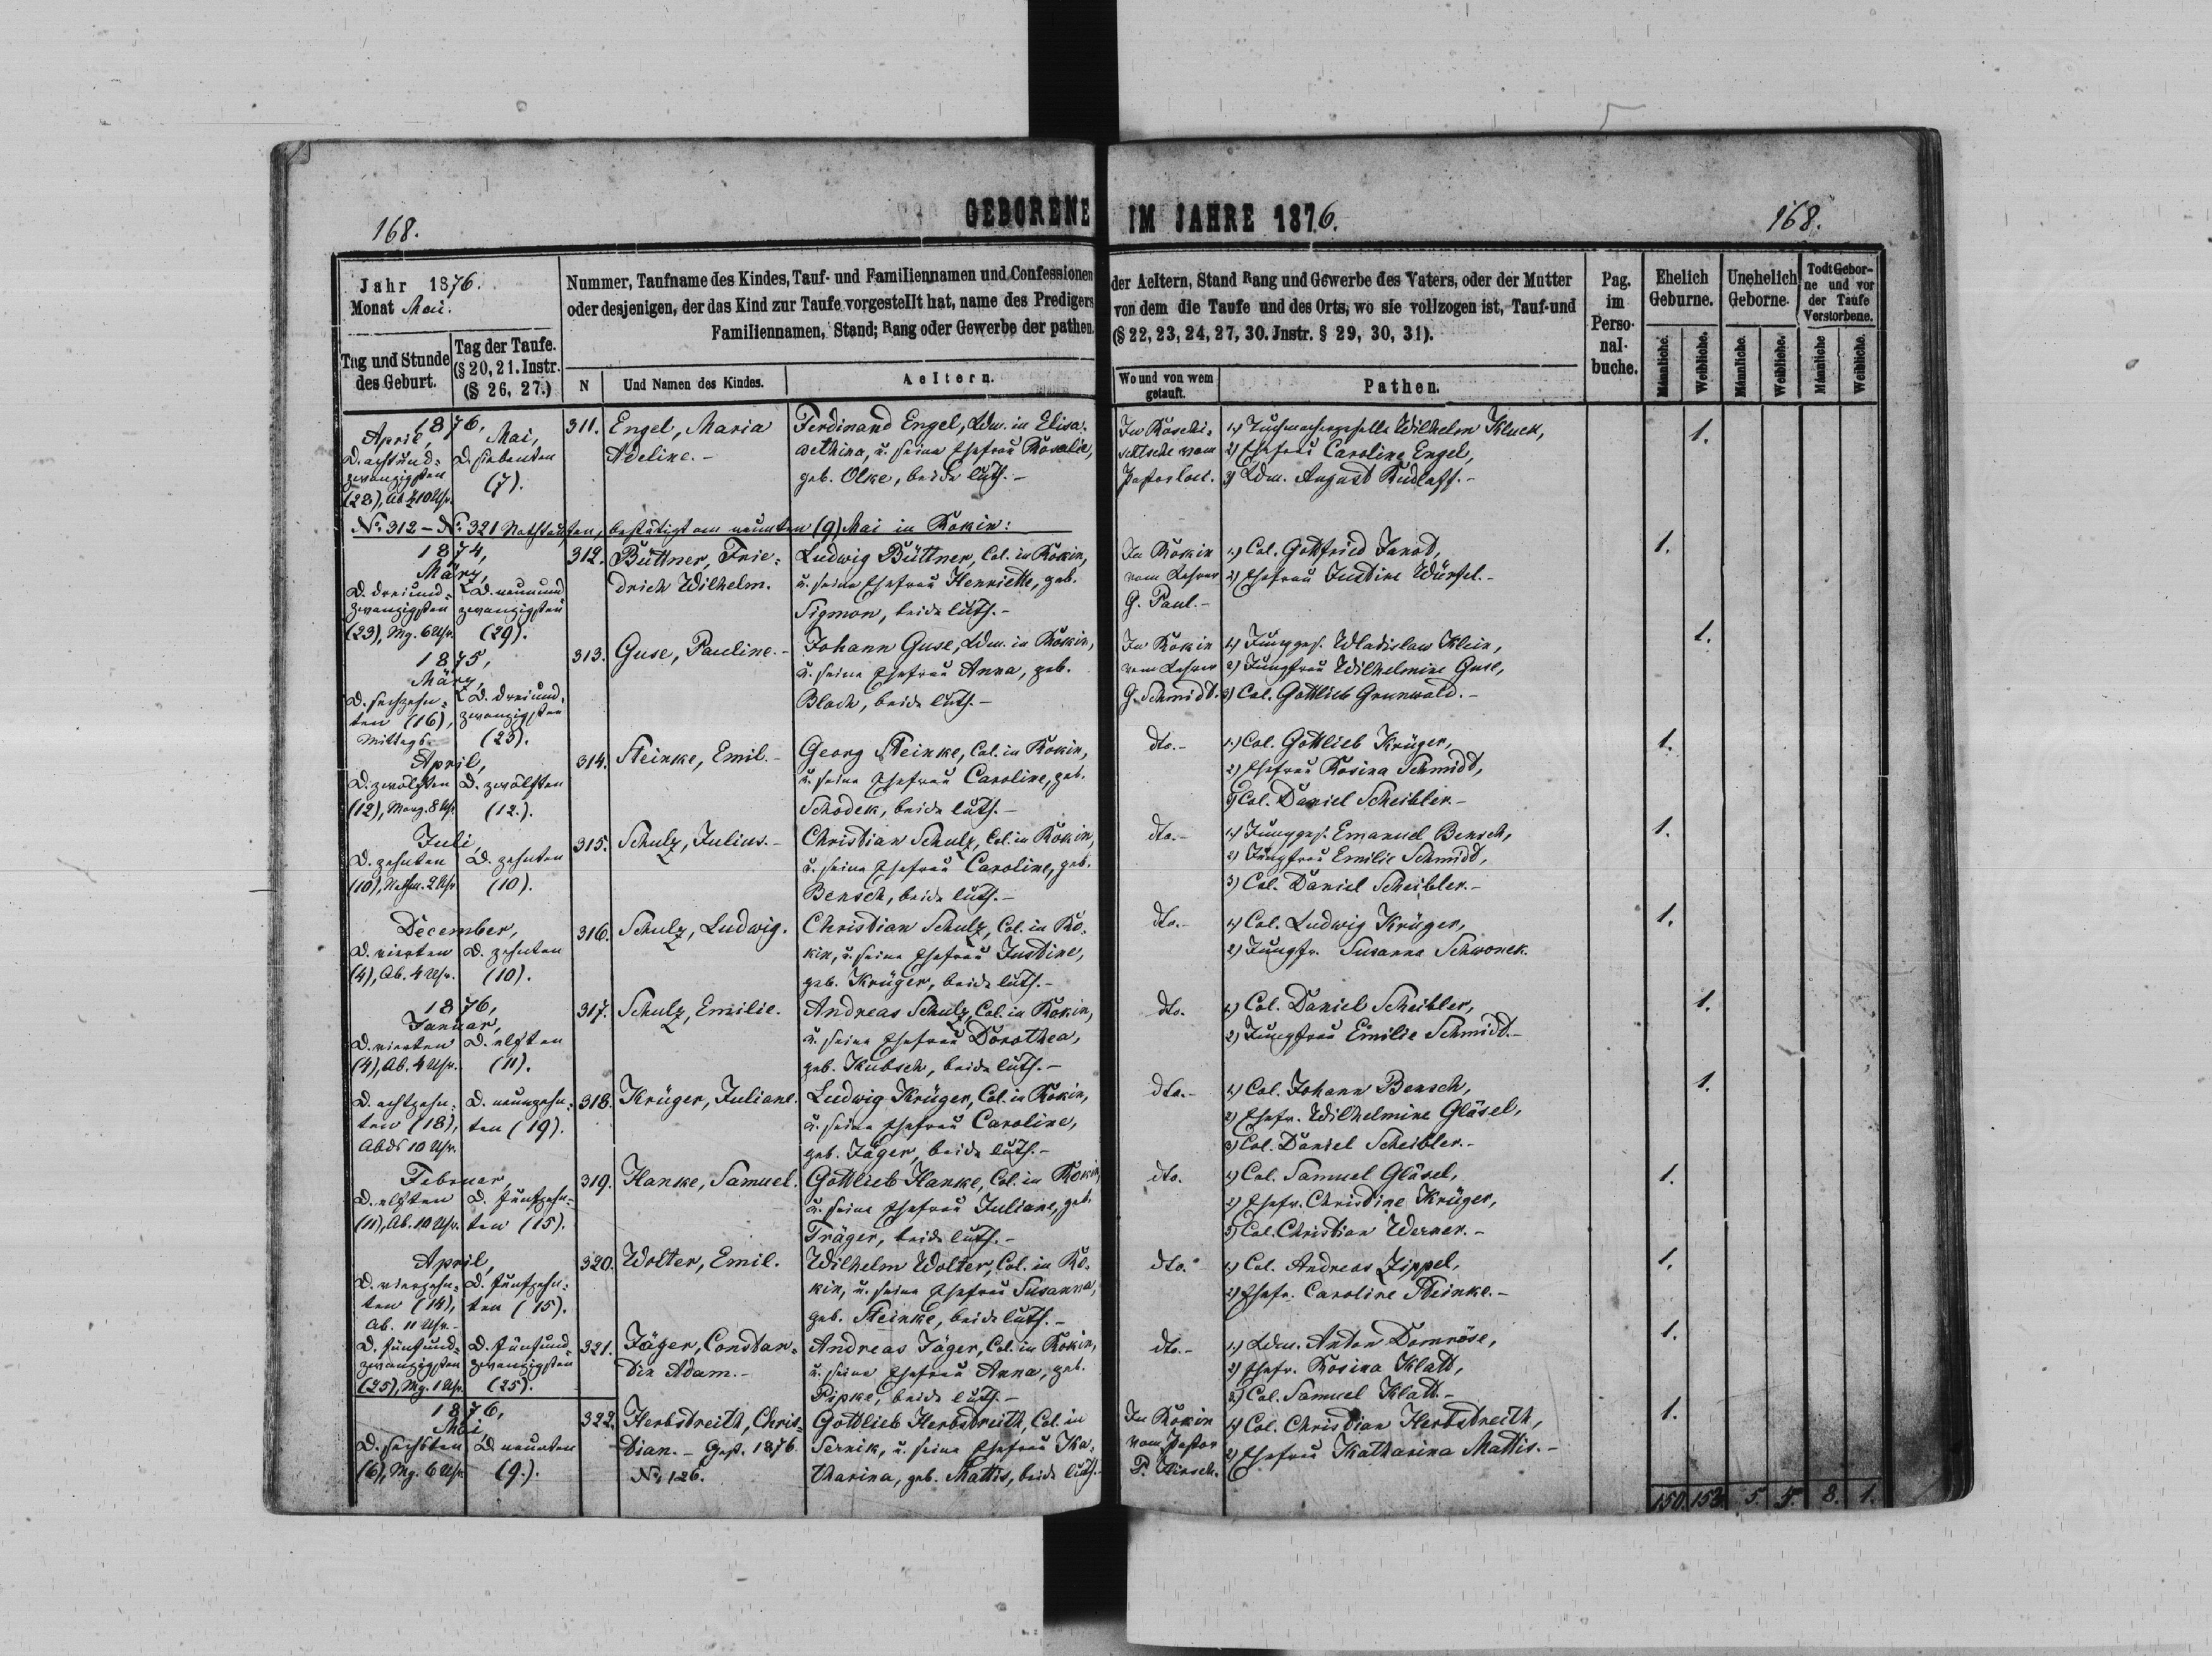 168.
GEBORENE IM JAHRE 1876.
168.
Jahr 1876.
Monat Mai.
Tag und Stunde des Geburt.
Tag der Taufe.
(§ 20, 21. Instr.
(§ 26, 27.)
Nummer, Taufname des Kindes, Tauf- und Familiennamen und Confessionen der Aeltern, Stand Rang und Gewerbe des Vaters, oder der Mutter
oder desjenigen, der das Kind zur Taufe vorgestellt hat, name des Predigers von dem die Taufe und des Orts, wo sie vollzogen ist, Tauf-und
Familiennamen, Stand; Rang oder Gewerbe der pathen. (§ 22, 23, 24, 27, 30. Jnstr. § 29, 30, 31).
N
Und Namen des Kindes.
Aeltern.
Wo und von wem getauft.
Pathen.
Pag. im Perso- nal- buche.
Ehelich Geburne.
Unehelich Geborne.
Todt Gebor- ne und vor der Taufe Verstorbene.
Männliche. Weibliche. Männliche. Weibliche. Männliche Weibliche.
1876,
April,
D. achtund-
zwanzigsten
(28), Ab. ½10 Uhr.
Mai,
D. siebenten
(7).
311.
Engel, Maria
Adeline.-
Ferdinand Engel, Ldw. in Elisa-
wethina, u. seine Ehefrau Rosalie,
geb. Olke, beide luth.-
In Roschi-
schtsche vom
Pastor loci.
1.) Tuchmachergeselle Wilhelm Kluck,
2) Ehefrau Caroline Engel,
3) Ldw. August Rudlaff.-
1.
No. 312 - No. 321 Nothtaufen, bestätigt am neunten (9) Mai in Rokin:
1874,
März,
D. dreiund-
zwanzigsten
(23), Mg. 6 Uhr.
D. neunund
zwanzigsten
(29).
312.
Büttner, Frie-
drich Wilhelm.
Ludwig Büttner, Col. in Rokin,
u. seine Ehefrau Henriette, geb.
Sigmon, beide luth.-
In Rokin
vom Lehrer
G. Paul.-
1.) Col. Gottfried Janot,
2) Ehefrau Justine Würfel.-
1.
1875,
März,
D. sechzehn-
ten (16),
Mittags.
D. dreiund-
zwanzigsten
(23).
313.
Guse, Pauline.-
Johann Guse, Ldw. in Rokin,
u. seine Ehefrau Anna, geb.
Bloch, beide luth.-
In Rokin
vom Lehrer
G. Schmidt.
1.) Jungges. Wladislaw Klein,
2) Jungfrau Wilhelmine Guse,
3) Col. Gottlieb Grunwald.-
1.
April,
D. zwölften
(12), Morg. 8 Uhr
D. zwölften
(12.).
314.
Steinke, Emil.-
Georg Steinke, Col. in Rokin,
u. seine Ehefrau Caroline, geb.
Schodek, beide luth.-
dto.-
1.) Col. Gottlieb Krüger,
2) Ehefrau Rosina Schmidt,
3) Col. Daniel Scheibler.-
1.
Juli,
D. zehnten
(10), Nachm. 2 Uhr
D. zehnten
(10).
315.
Schulz, Julius.-
Christian Schulz, Col. in Rokin,
u. seine Ehefrau Caroline, geb.
Bensch, beide luth.-
dto.-
1.) Jungges. Emanuel Bensch,
2) Jungfrau Emilie Schmidt,
3) Col. Daniel Scheibler.-
1.
December,
D. vierten
(4), Ab. 4 Uhr.
D. zehnten
(10).
316.
Schulz, Ludwig.
Christian Schulz, Col. in Ro-
kin, u. seine Ehefrau Justine,
geb. Krüger, beide luth.-
dto.-
1.) Col. Ludwig Krüger,
2) Jungfr. Susanna Schwonek.
1.
1876,
Januar,
D. vierten
(4), Ab. 4 Uhr.
D. elften
(11).
317.
Schulz, Emilie.
Andreas Schulz, Col. in Rokin,
u. seine Ehefrau Dorothea,
geb. Kubsch, beide luth.-
dto.
1.) Col. Daniel Scheibler,
2) Jungfrau Emilie Schmidt.-
1.
D. achtzehn-
ten (18),
Abds 10 Uhr.
D. neunzehn-
ten (19).
318.
Krüger, Juliane.
Ludwig Krüger, Col. in Rokin,
u. seine Ehefrau Caroline,
geb. Jäger, beide luth.-
dto.-
1.) Col. Johann Bensch,
2) Ehefr. Wilhelmine Gläsel,
3) Col. Daniel Scheibler.-
1.
Februar,
D. elften
(11), Ab. 10 Uhr.
D. fünfzehn-
ten (15).
319.
Hanke, Samuel.
Gottlieb Hanke, Col. in Rokin,
u. seine Ehefrau Juliane, geb.
Träger, beide luth.-
dto.
1.) Col. Samuel Gläsel,
2) Ehefr. Christine Krüger,
3) Col. Christian Werner.-
1.
April,
D. vierzehn-
ten (14),
Ab. 11 Uhr.-
D. fünfzehn-
ten (15).
320.
Wolter, Emil.
Wilhelm Wolter, Col. in Ro-
kin, u. seine Ehefrau Susanna,
geb. Steinke, beide luth.-
dto.
1.) Col. Andreas Zippel,
2) Ehefr. Caroline Steinke.-
1.
D. fünfund-
zwanzigsten
(25), Mg. 1 Uhr.
D. fünfund
zwanzigsten
(25).
321.
Jäger, Constan-
tin Adam.-
Andreas Jäger, Col. in Rokin,
u. seine Ehefrau Anna, geb.
Pipke, beide luth.-
dto.-
1.) Ldw. Anton Domröse,
2) Ehefr. Rosina Klatt,
3) Col. Samuel Klatt.-
1.
1876,
Mai,
D. sechsten
(6), Mg. 6 Uhr.
D. neunten
(9.).
322.
Herbstreith, Chris-
tian.- Gest. 1876.
No. 126.
Gottlieb Herbstreith, Col. in
Sernik, u. seine Ehefrau Ka-
tharina, geb. Mattis, beide luth.
In Rokin
vom Pastor
P. Hirsch.
1.) Col. Christian Herbstreith,
2) Ehefrau Katharina Mattis.-
1.
150. 153. 5. 5. 8. 1.